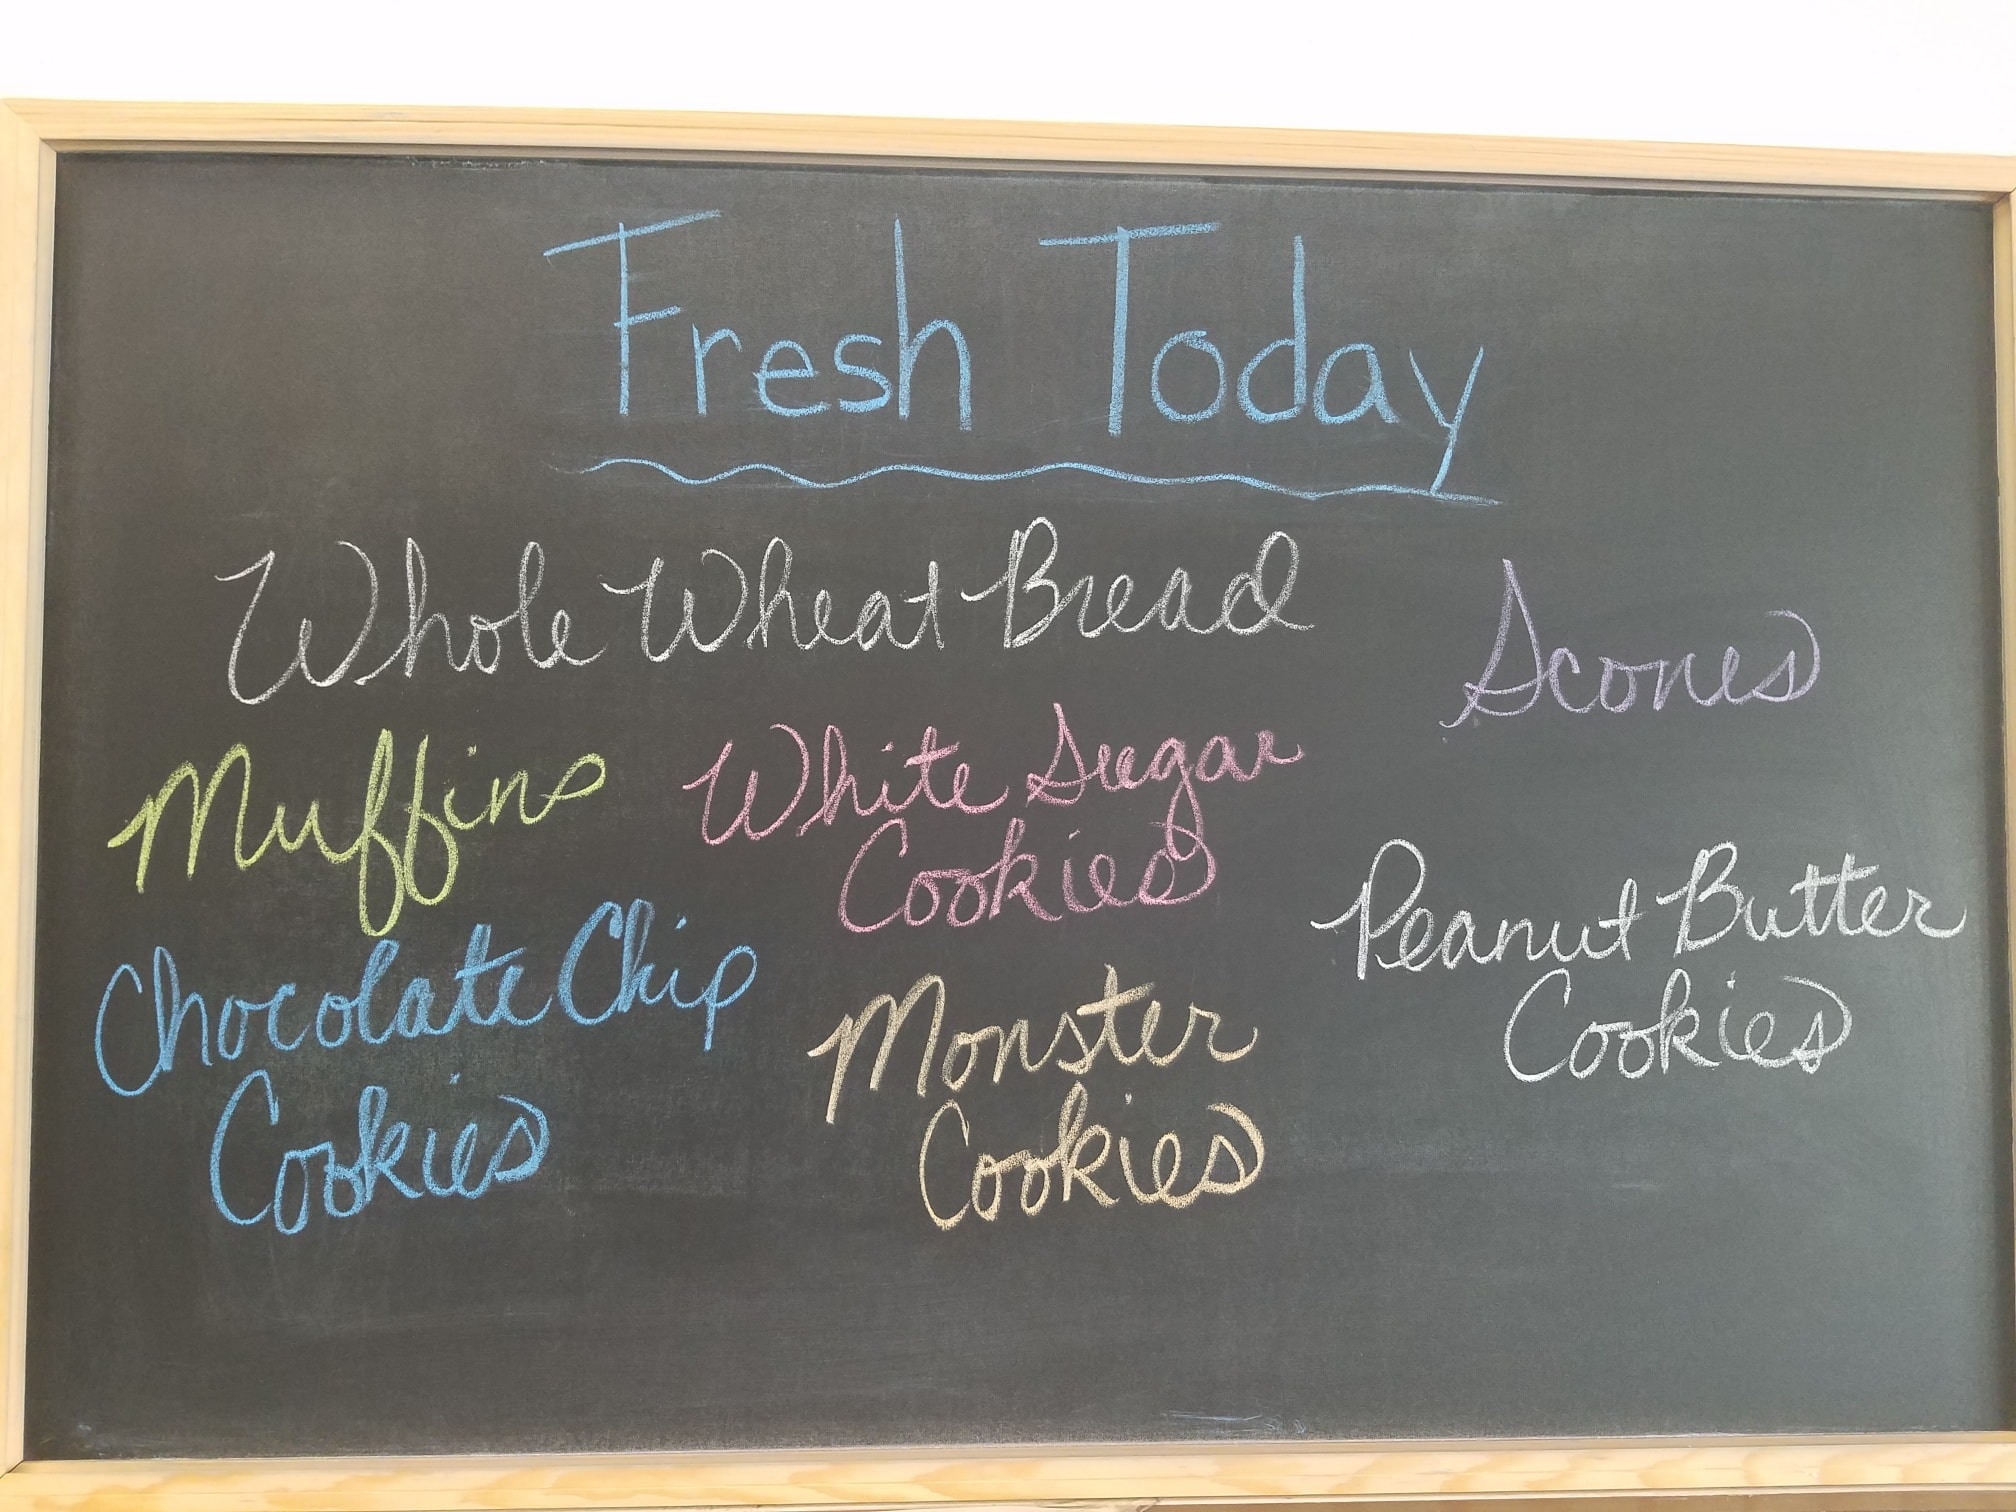 Fresh Today
Whole Wheat Bread
Scones
Muffins
White Sugar
Cookies
Peanut Butter
Cookies
Chocolate Chip
Cookies
Monster
Cookies